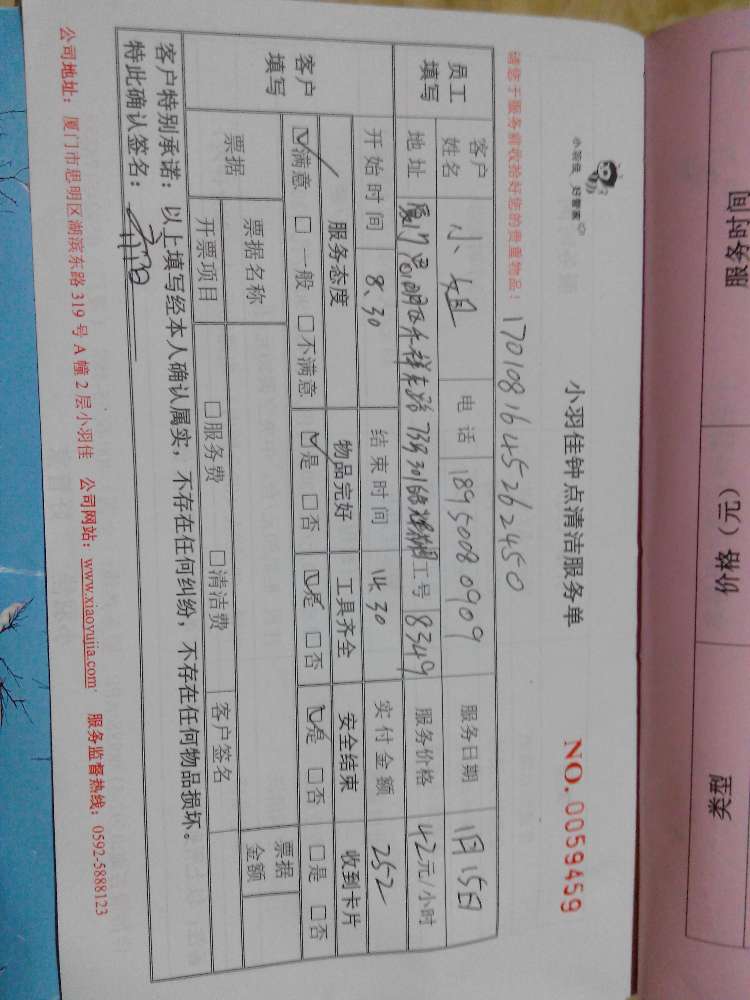 小羽佳 好管家
小羽佳钟点清洁服务单
NO. 0059459
请您于服务前收拾好您的贵重物品！ 1701081645262450
员工填写 客户姓名 小姐 电话 18950080909 服务日期 1月15日
地址 厦门思明区 工号 8349 服务价格 42元/小时
开始时间 8.30 结束时间 14.30 实付金额 252
客户填写 服务态度 物品完好 工具齐全 安全结束 收到卡片
☑满意 □一般 □不满意 ☑是 □否 ☑是 □否 ☑是 □否 □是 □否
票据 票据名称 票据金额
开票项目 □服务费 □清洁费 客户签名
客户特别承诺：以上填写经本人确认属实，不存在任何纠纷，不存在任何物品损坏。
特此确认签名：
公司地址：厦门市思明区湖滨东路319号A幢2层小羽佳 公司网站：www.xiaoyujia.com 服务监督热线：0592-5888123
服务时间
价格（元）
类型